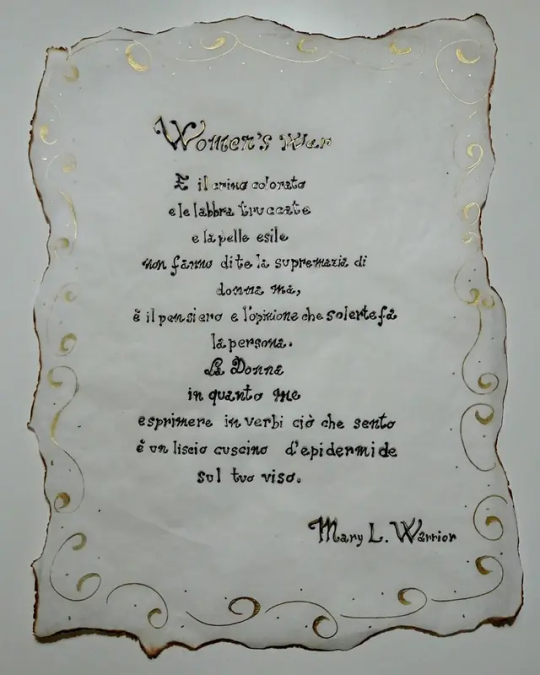 Women's War
E il crine colorato
e le labbra truccate
e la pelle esile
non fanno di te la supremazia di
donna ma,
è il pensiero e l'opinione che solerte fà
la persona.
La Donna
in quanto me
esprimere in verbi ciò che sento
è un liscio cuscino d'epidermide
sul tuo viso.
Mary L. Warrior